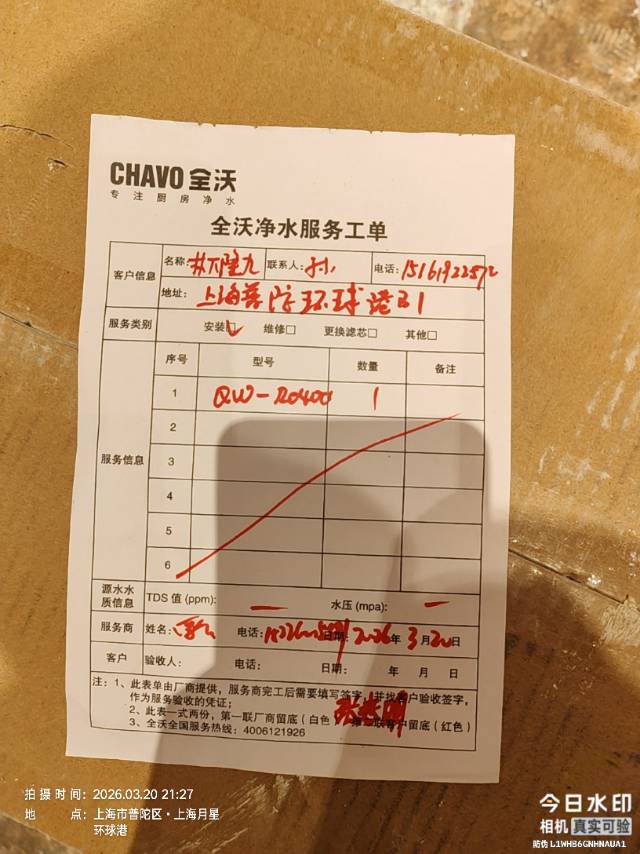 CHAVO 全沃
专 注 厨 房 净 水
全沃净水服务工单
客户信息 名称: 联系人: 电话:
地址: 上海普陀环球港B1
服务类别 安装☑ 维修□ 更换滤芯□ 其他□
服务信息 序号 型号 数量 备注
1 QW-RO400 1
2
3
4
5
6
源水水质信息 TDS 值 (ppm): — 水压 (mpa): —
服务商 姓名: 电话: 日期: 2026年 3月20日
客户 验收人: 电话: 日期: 年 月 日
注: 1、此表单由厂商提供, 服务商完工后需要填写签字, 并找客户验收签字,
作为服务验收的凭证;
2、此表一式两份, 第一联厂商留底 (白色 联客户留底 (红色)
3、全沃全国服务热线: 4006121926
拍 摄 时 间: 2026.03.20 21:27
地 点: 上海市普陀区·上海月星
环球港
今日水印
相机 真实可验
防伪 L1WHB6GNHNAUA1